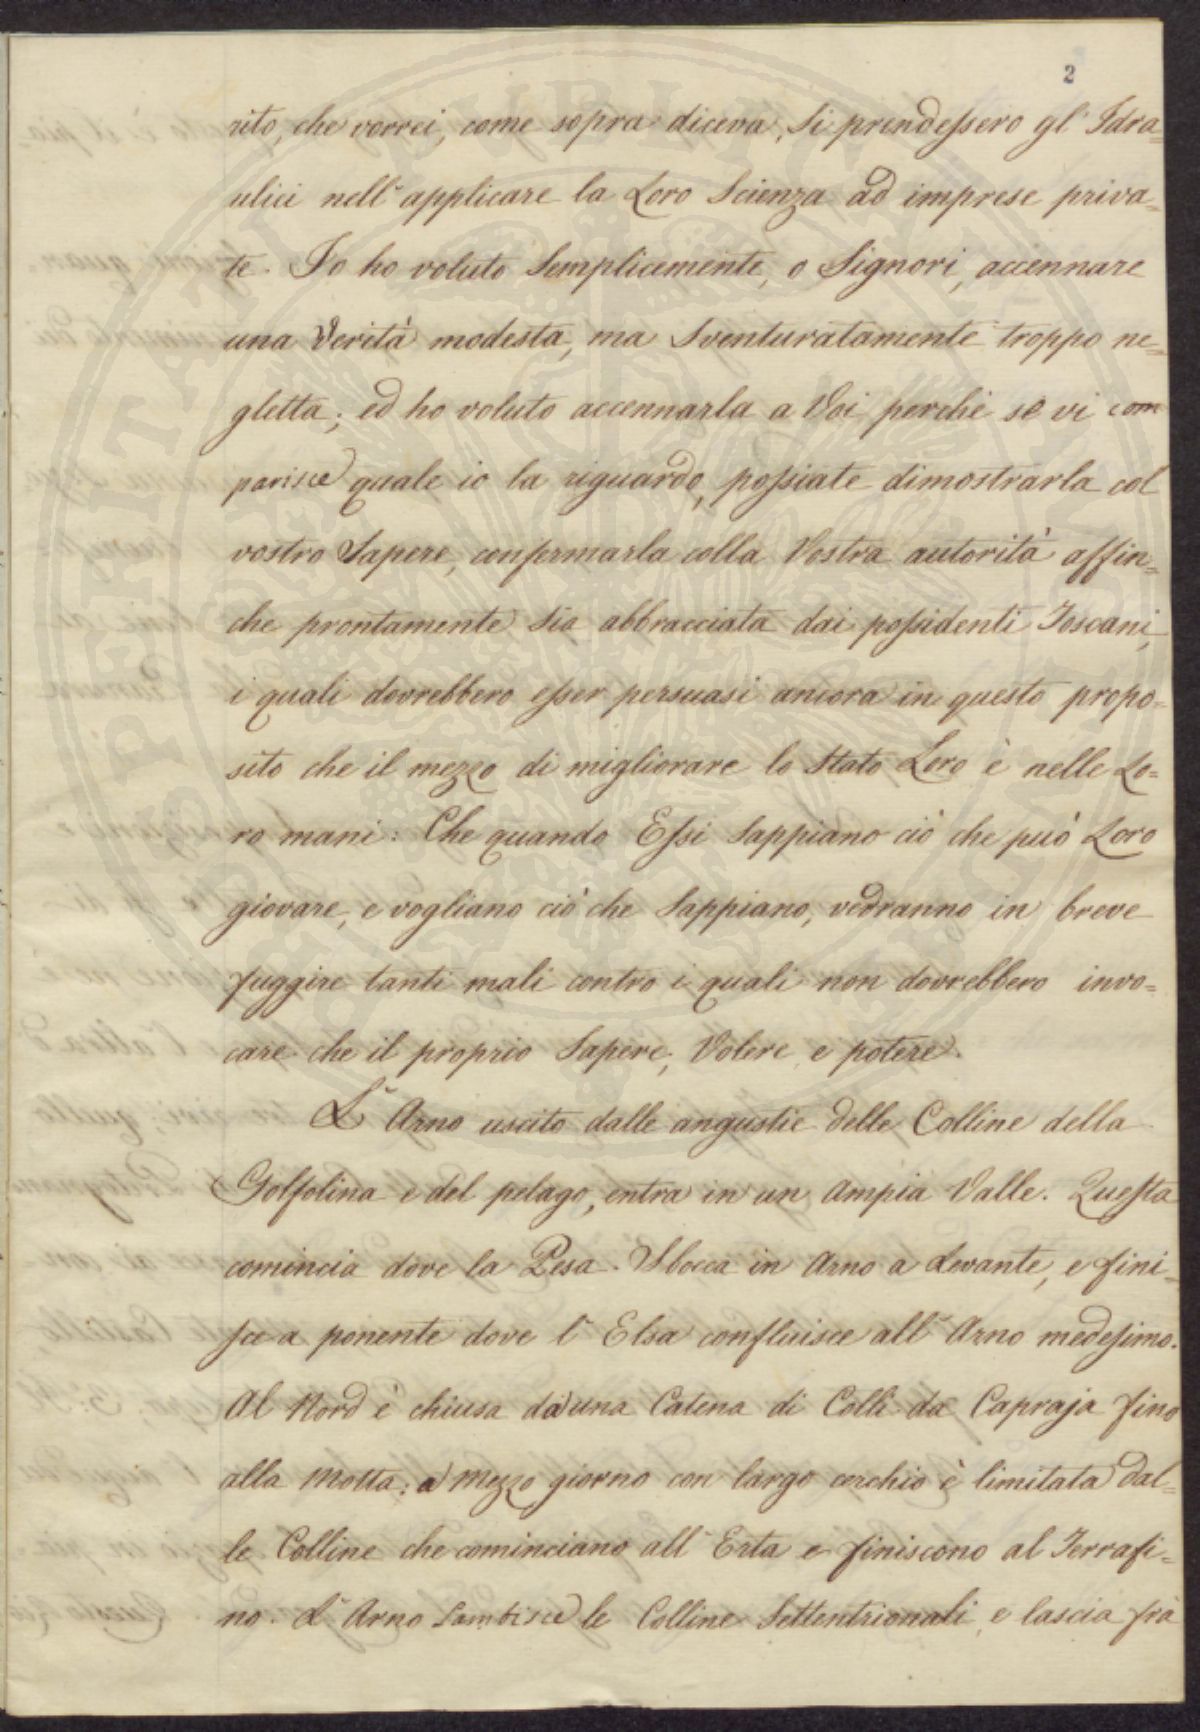 2
rito, che vorrei, come sopra diceva, si prendessero gl' Idra=
ulici nell' applicare la Loro Scienza ad imprese priva=
te. Io ho voluto Semplicemente, o Signori, accennare
una Verità modesta, ma Sventuratamente troppo ne=
gletta; ed ho voluto accennarla a Voi perchè se vi com
parisce quale io la riguardo, possiate dimostrarla col
vostro Sapere, confermarla colla Vostra autorità affin=
che prontamente Sia abbracciata dai possidenti Toscani,
i quali dovrebbero esser persuasi ancora in questo propo=
sito che il mezzo di migliorare lo Stato Loro è nelle Lo=
ro mani: Che quando Essi Sappiano ciò che può Loro
giovare, e vogliano ciò che Sappiano, vedranno in breve
fuggire tanti mali contro i quali non dovrebbero invo=
care che il proprio Sapere, Volere e potere.
L' Arno uscito dalle angustie delle Colline della
Golfolina e del pelago, entra in un Ampia Valle. Questa
comincia dove la Pesa Sbocca in Arno a Levante, e fini=
sce a ponente dove l' Elsa confluisce all' Arno medesimo.
Al Nord è chiusa da una Catena di Colli da Capraja fino
alla Motta; a Mezzo giorno con largo cerchio è limitata dal=
le Colline che cominciano all' Erta e finiscono al Terrafi=
no. L' Arno Lambisce le Colline Settentrionali, e lascia frà
PROSPERITATI PUBLICAE AUGENDAE